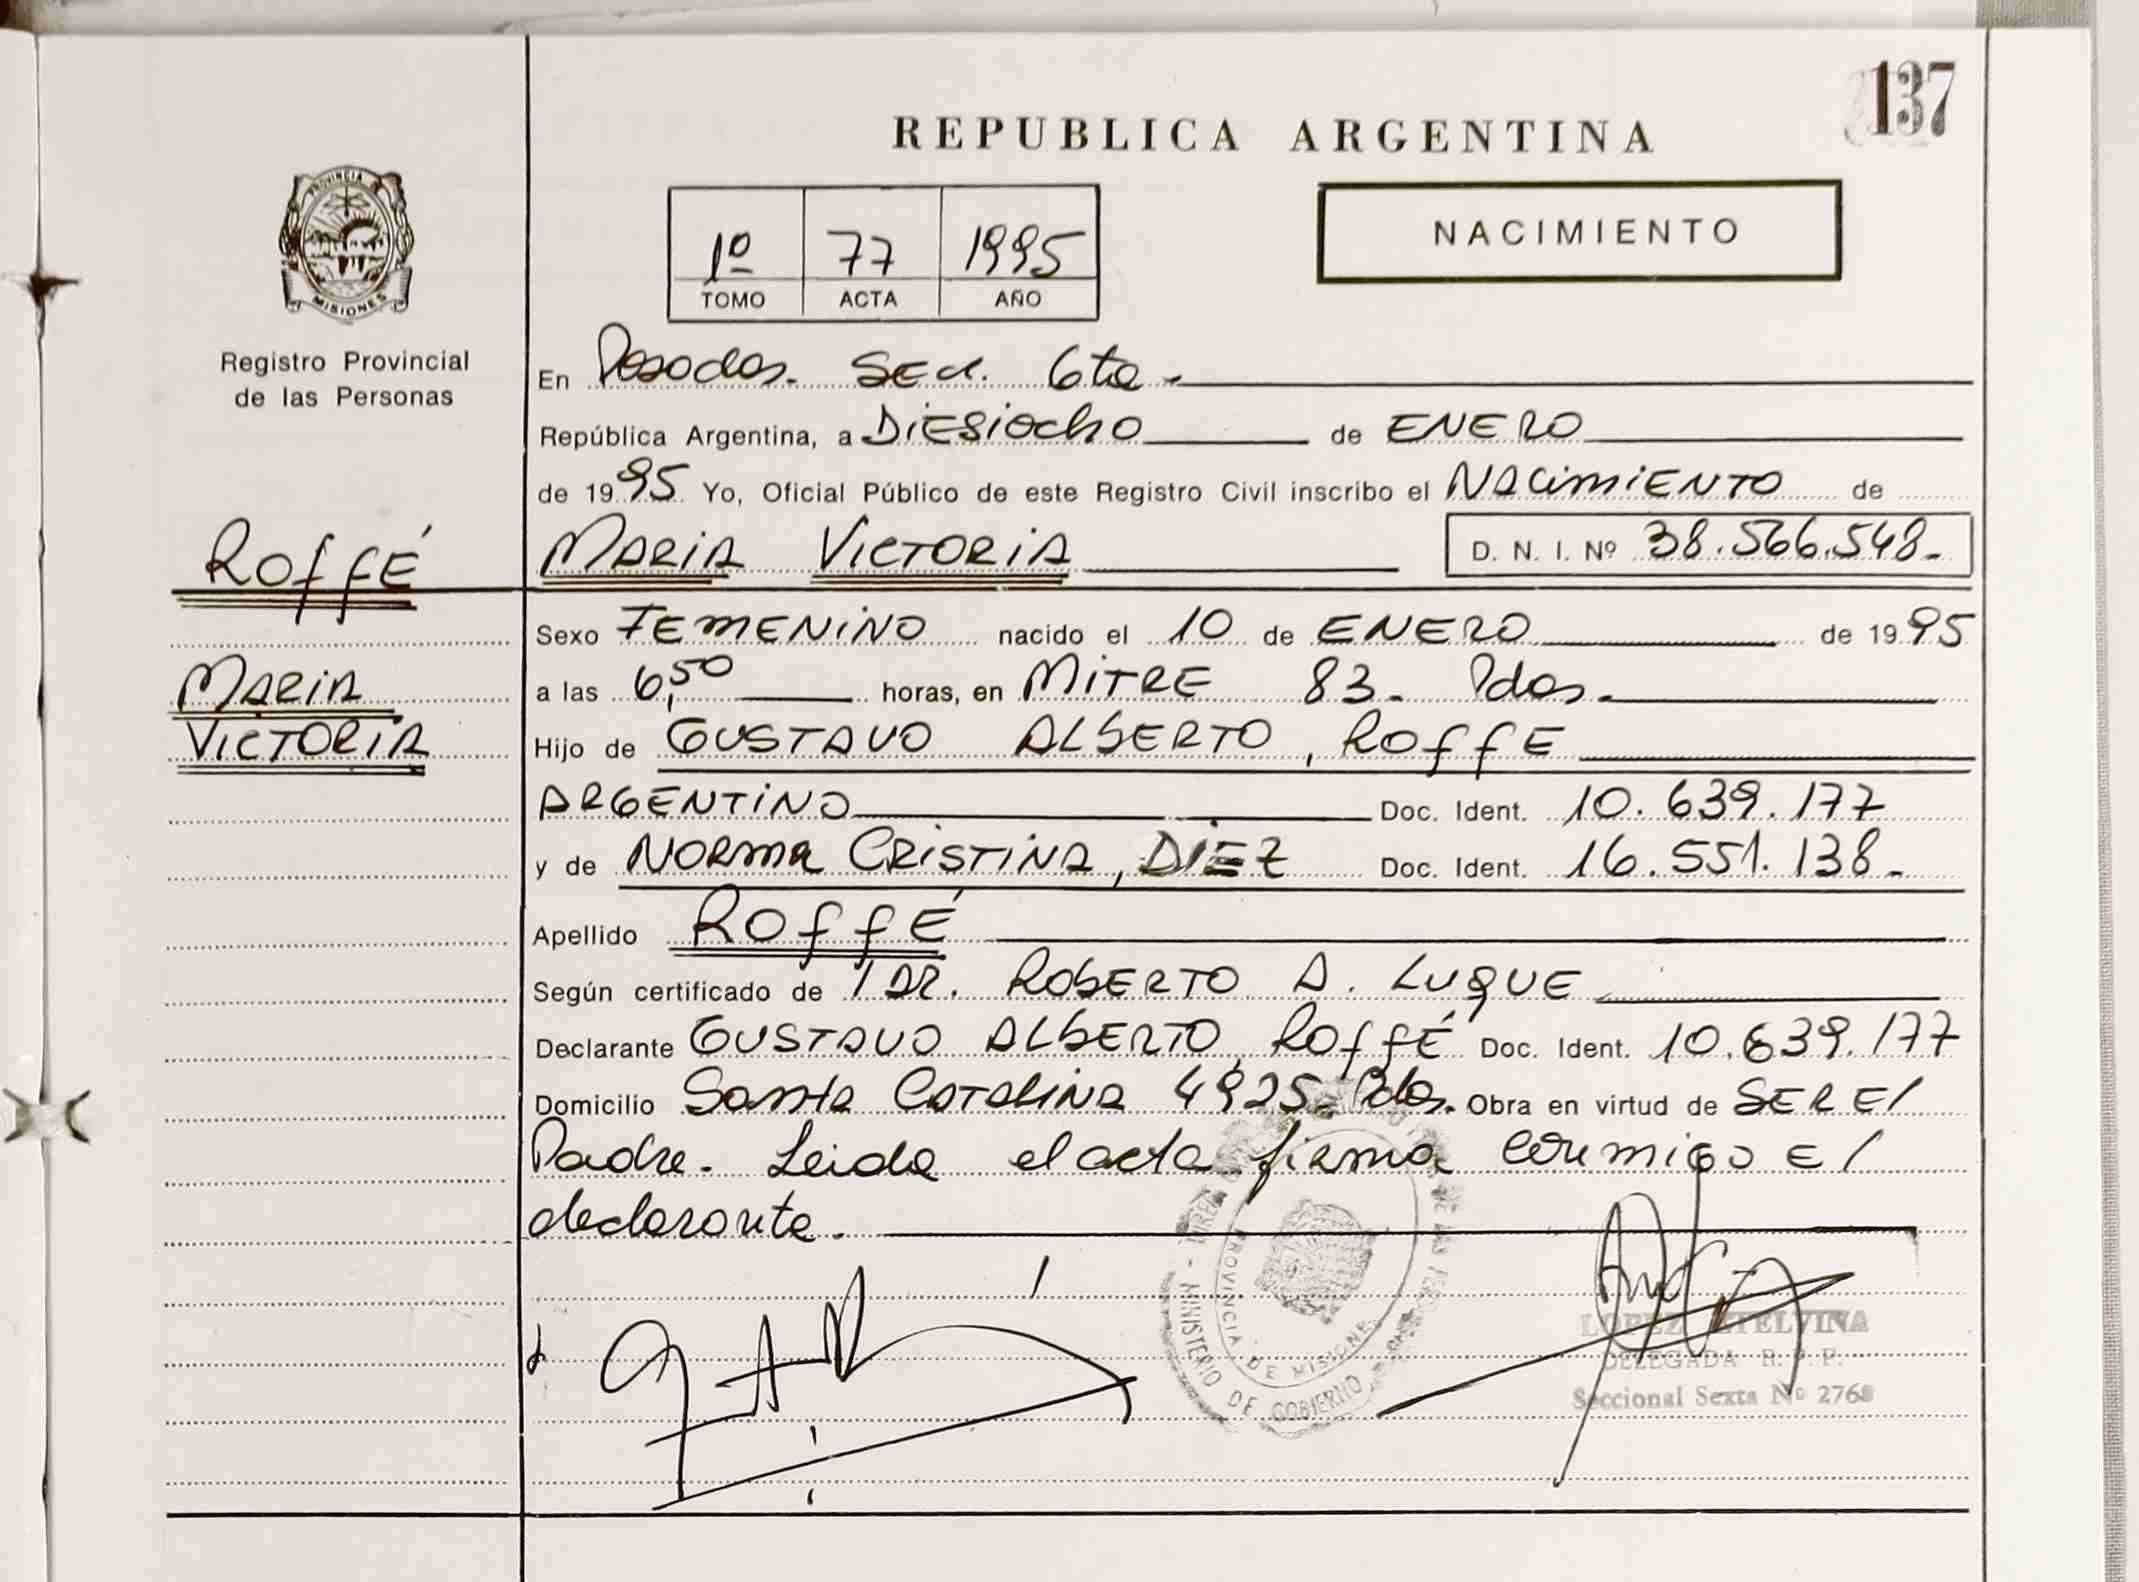 137
REPUBLICA ARGENTINA
NACIMIENTO
1º 77 1995
TOMO ACTA AÑO
PROVINCIA DE
MISIONES
Registro Provincial
de las Personas
En Posadas. Secc. 6ta.
República Argentina, a DIESIOCHO de ENERO
de 1995 Yo, Oficial Público de este Registro Civil inscribo el NACIMIENTO de
ROFFÉ
MARIA VICTORIA D. N. I. Nº 38.566.548.
Sexo FEMENINO nacido el 10 de ENERO de 1995
MARIA
a las 6,50 horas, en MITRE 83. Pdas.
VICTORIA
Hijo de GUSTAVO ALBERTO, ROFFE
ARGENTINO Doc. Ident. 10.639.177
y de NORMA CRISTINA, DIEZ Doc. Ident. 16.551.138.
Apellido ROFFÉ
Según certificado de 1 DR. ROBERTO A. LUQUE
Declarante GUSTAVO ALBERTO, ROFFÉ Doc. Ident. 10.639.177
Domicilio Santa CATALINA 4925. Pdas. Obra en virtud de SER El
Padre. Leida el acta firma conmigo El
declarante.
PROVINCIA DE MISIONES
MINISTERIO DE GOBIERNO
LOPEZ ETELVINA
DELEGADA R. P. P.
Seccional Sexta Nº 2768